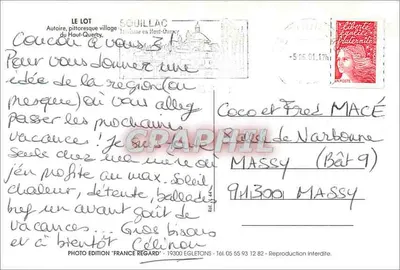 LE LOT
Autoire, pittoresque village
du Haut-Quercy.
SOUILLAC
Coucou à vous 3 !
Pour vous donner une
idée de la région (ou
presque) où vous allez
passer les prochaines
vacances ! Je suis
seule chez ma mère ou
j'en profite au max. Soleil
chaleur, détente, ballades
bref un avant goût de
vacances... Gros bisous
et à bientôt Célinou
Liberté
égalité
fraternité
LA POSTE
Coco et Fred MACÉ
8 allée de Narbonne
MASSY (Bât 9)
91300 MASSY
CARTHAPHIL
PHOTO EDITION "FRANCE REGARD" - 19300 EGLETONS - Tél 05 55 93 12 82 - Reproduction interdite.